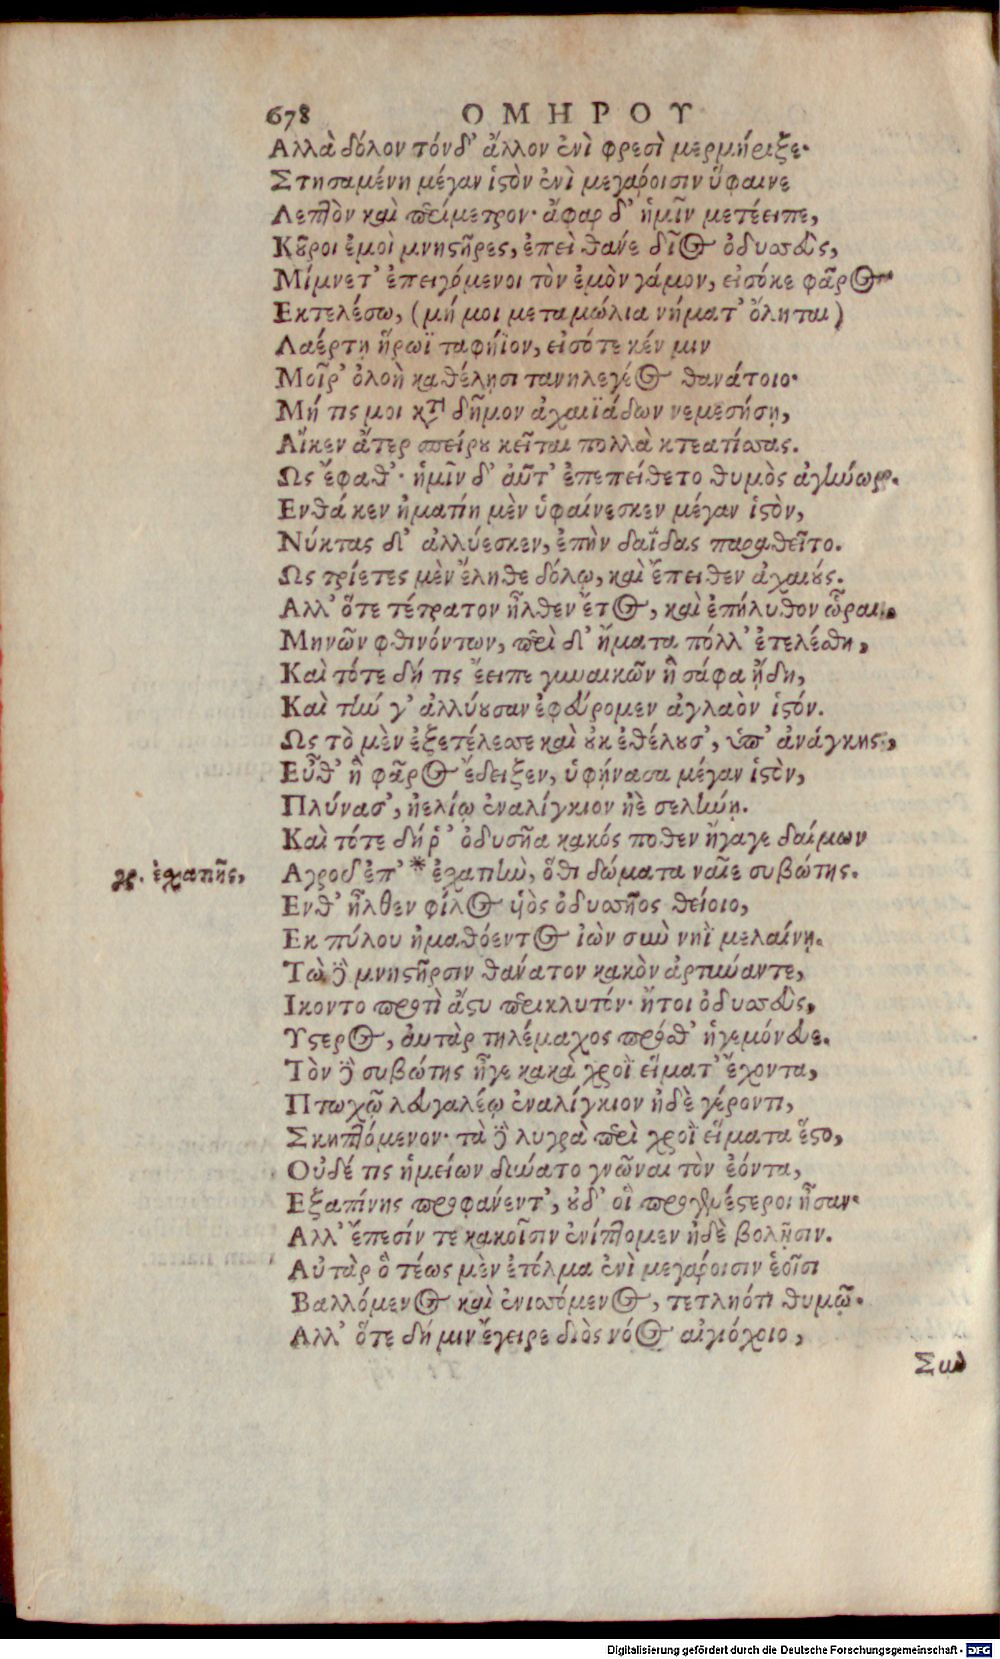 678 ΟΜΗΡΟΥ
Αλλὰ δόλον τόνδ' ἄλλον ἐνὶ φρεσὶ μερμήριξε·
Στησαμένη μέγαν ἱστὸν ἐνὶ μεγάροισιν ὕφαινε
Λεπτὸν καὶ περίμετρον· ἄφαρ δ' ἡμῖν μετέειπε,
Κοῦροι ἐμοὶ μνηστῆρες, ἐπεὶ θάνε δῖος ὀδυσσεὺς,
Μίμνετ' ἐπειγόμενοι τὸν ἐμὸν γάμον, εἰσόκε φᾶρος
Εκτελέσω, (μή μοι μεταμώλια νήματ' ὄληται)
Λαέρτῃ ἥρωϊ ταφήϊον, εἰσότε κέν μιν
Μοῖρ' ὀλοὴ καθέλῃσι τανηλεγέος θανάτοιο·
Μή τις μοι κατὰ δῆμον ἀχαιϊάδων νεμεσήσῃ,
Αἴκεν ἄτερ σπείρου κεῖται πολλὰ κτεατίσσας.
Ως ἔφαθ'· ἡμῖν δ' αὖτ' ἐπεπείθετο θυμὸς ἀγήνωρ.
Ενθά κεν ἠματίη μὲν ὑφαίνεσκεν μέγαν ἱστὸν,
Νύκτας δ' ἀλλύεσκεν, ἐπὴν δαΐδας παραθεῖτο.
Ως τρίετες μὲν ἔληθε δόλῳ, καὶ ἔπειθεν ἀχαιούς.
Αλλ' ὅτε τέτρατον ἦλθεν ἔτος, καὶ ἐπήλυθον ὧραι,
Μηνῶν φθινόντων, περὶ δ' ἤματα πόλλ' ἐτελέσθη,
Καὶ τότε δή τις ἔειπε γυναικῶν ἣ σάφα ᾔδη,
Καὶ τήν γ' ἀλλύουσαν ἐφεύρομεν ἀγλαὸν ἱστόν.
Ως τὸ μὲν ἐξετέλεσσε καὶ οὐκ ἐθέλουσ', ὑπ' ἀνάγκης,
Εὖθ' ἣ φᾶρος ἔδειξεν, ὑφήνασα μέγαν ἱστὸν,
Πλύνασ', ἠελίῳ ἐναλίγκιον ἠὲ σελήνῃ.
Καὶ τότε δή ῥ' ὀδυσῆα κακός ποθεν ἤγαγε δαίμων
γρ. ἐσχατιῆς, Αγροῦ ἐπ' * ἐσχατιὴν, ὅθι δώματα ναῖε συβώτης.
Ενθ' ἦλθεν φίλος υἱὸς ὀδυσσῆος θείοιο,
Εκ πύλου ἠμαθόεντος ἰὼν σὺν νηῒ μελαίνῃ.
Τὼ δὲ μνηστῆρσιν θάνατον κακὸν ἀρτύναντε,
Ικοντο προτὶ ἄστυ περικλυτόν· ἤτοι ὀδυσσεὺς,
Υστερος, αὐτὰρ τηλέμαχος πρόσθ' ἡγεμόνευε.
Τὸν δὲ συβώτης ἦγε κακὰ χροῒ εἵματ' ἔχοντα,
Πτωχῷ λευγαλέῳ ἐναλίγκιον ἠδὲ γέροντι,
Σκηπτόμενον· τὰ δὲ λυγρὰ περὶ χροῒ εἵματα ἕστο,
Οὐδέ τις ἡμείων δύνατο γνῶναι τὸν ἐόντα,
Εξαπίνης προφανέντ', οὐδ' οἳ προγενέστεροι ἦσαν·
Αλλ' ἔπεσίν τε κακοῖσιν ἐνίπτομεν ἠδὲ βολῇσιν.
Αὐτὰρ ὃ τέως μὲν ἐτόλμα ἐνὶ μεγάροισιν ἑοῖσι
Βαλλόμενος καὶ ἐνισσόμενος, τετληότι θυμῷ.
Αλλ' ὅτε δή μιν ἔγειρε διὸς νόος αἰγιόχοιο,
Σὺν
Digitalisierung gefördert durch die Deutsche Forschungsgemeinschaft - DFG